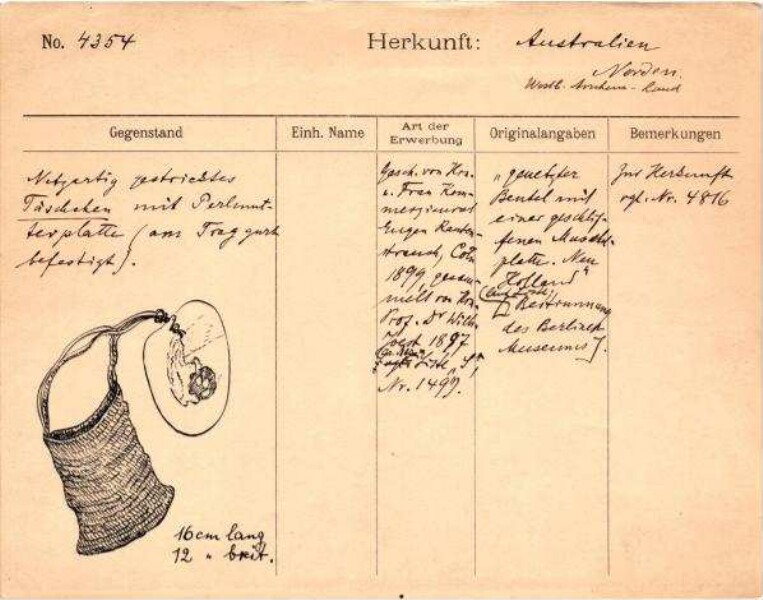 No. 4354
Herkunft: Australien
Norden.
Westl. Arnhem-Land
Gegenstand
Einh. Name
Art der
Erwerbung
Originalangaben
Bemerkungen
Netzartig gestricktes
Täschchen mit Perlmut-
terplatte (am Traggurt
befestigt).
16 cm lang
12 " breit.
Gesch. von Hrn.
u. Frau Kom-
merzienrat
Eugen Rauten-
strauch, Cöln
1899, gesam-
melt von Hrn.
Prof. Dr Wilh.
Joest 1897
Liste
Nr. 1499.
„genetzter
Beutel mit
einer geschlif-
fenen Muschel-
platte. Neu
Holland"
Bestimmung
des Berliner
Museums].
Zur Herkunft
vgl. Nr. 4816